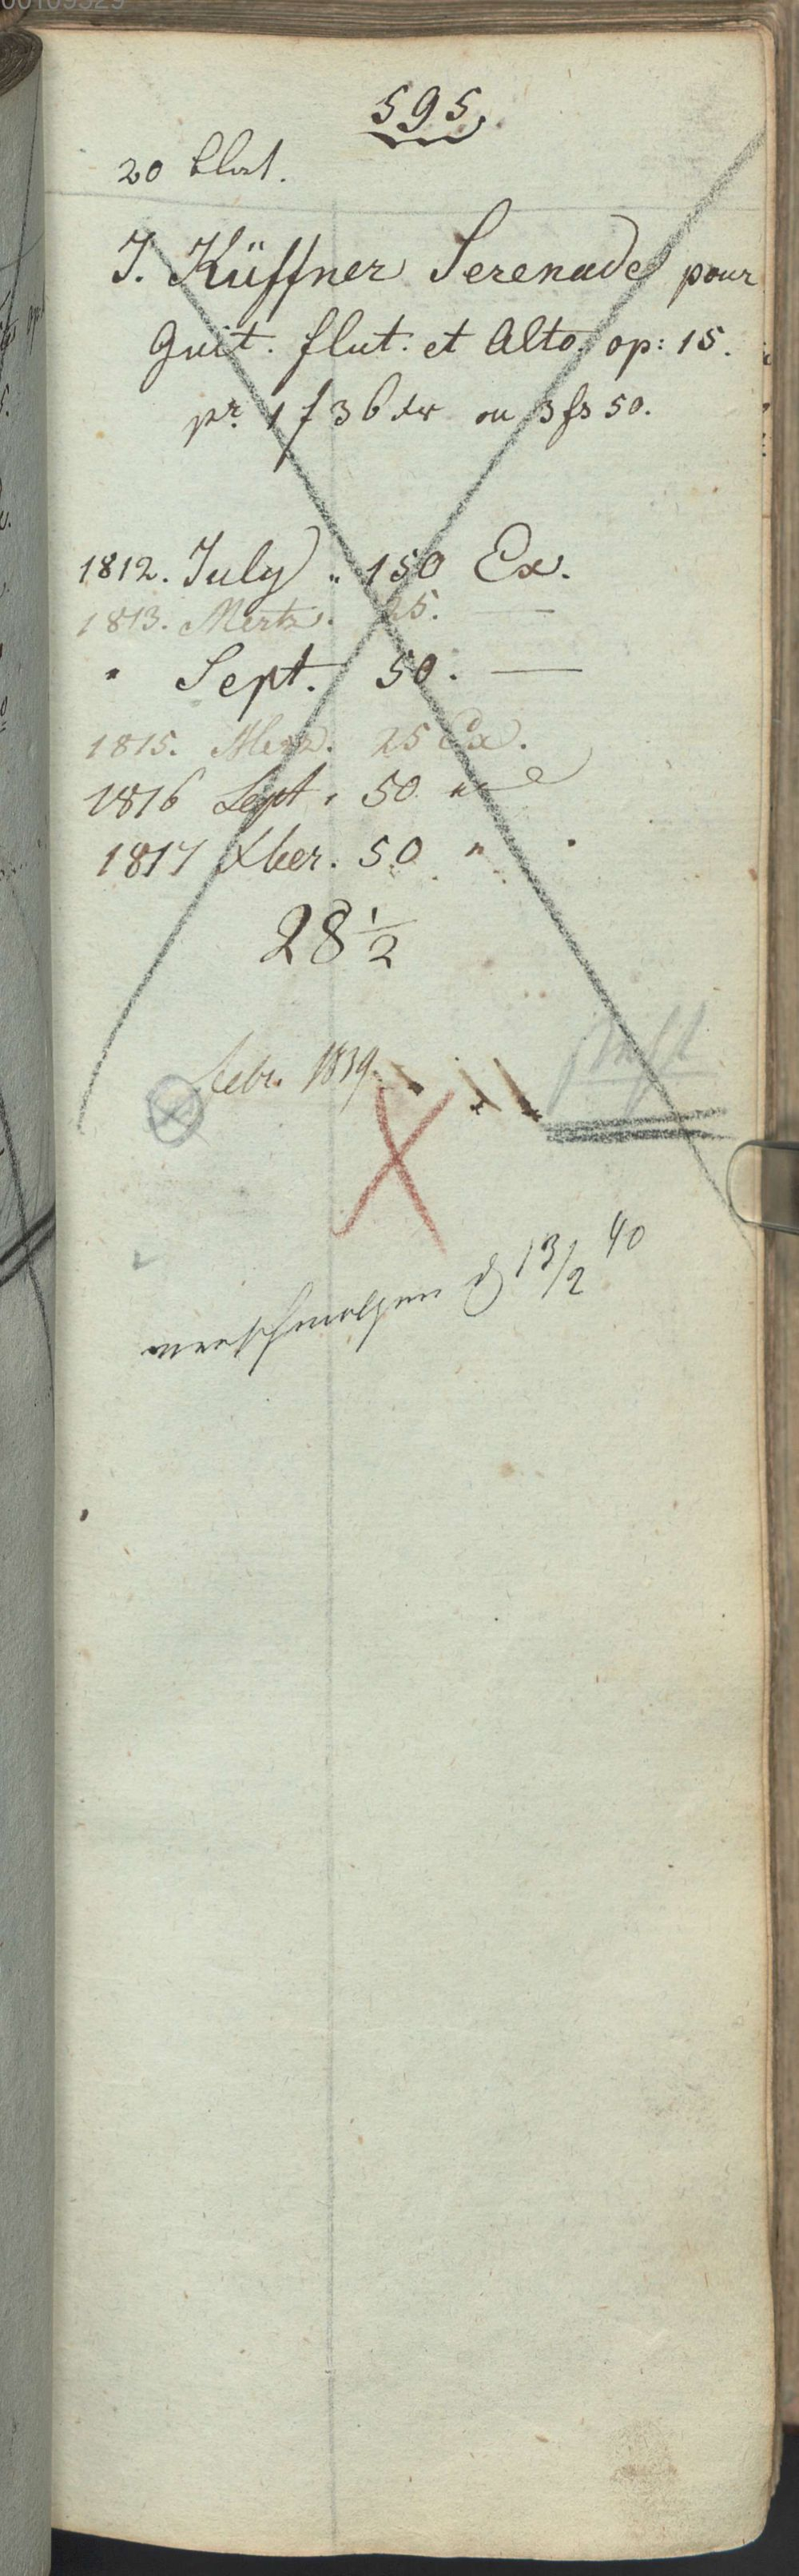 595.
20 blat.
J. Küffner Serenade pour
Guit. flut. et Alto. op: 15.
pr. 1 f 36 xr ou 3 fs 50.
1812. July „ 150 Ex.
1813. Mertz. 25. —
" Sept. 50. —
1815. Merz. 25 Ex.
1816 Sept. 50 "
1817 Xber. 50 "
28 1/2
febr. 1839.
verschmolzen d 13/2 40